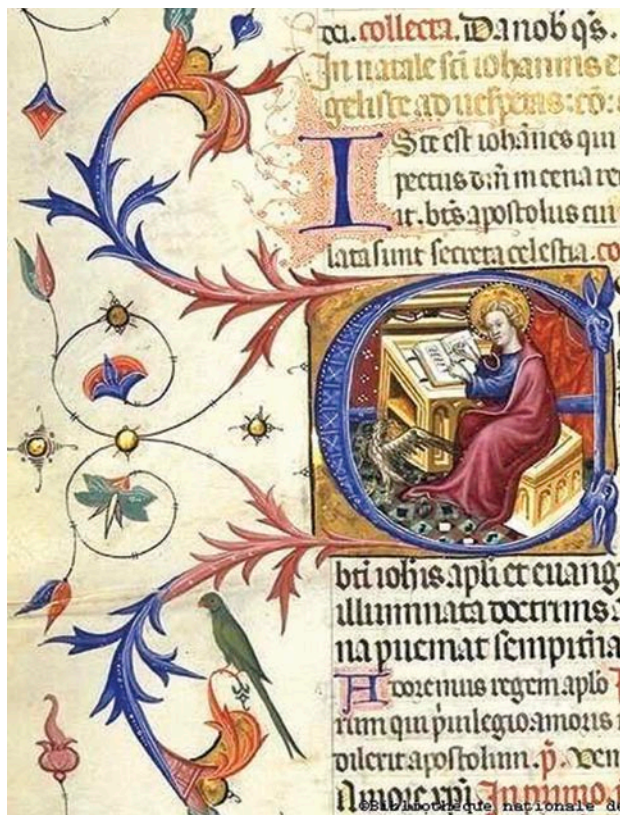 dei. collecta. Da nob̄ qs̄.
In natale sc̄i iohannis e
geliste ad uesperas: cō:
Iste est iohānes qui
pectus dn̄i in cena re
it. bt̄s apostolus cui
lata sunt secreta celestia. co
bt̄i ioh̄is apl̄i et euang
illuminata doctrinis
na pueniat sempit̄na
Adoremus regem aplo
rum qui p̄uilegio amoris
dilexit apostolum. p̄. Ven
Amore xp̄i. In primo
©Bibliothèque nationale de